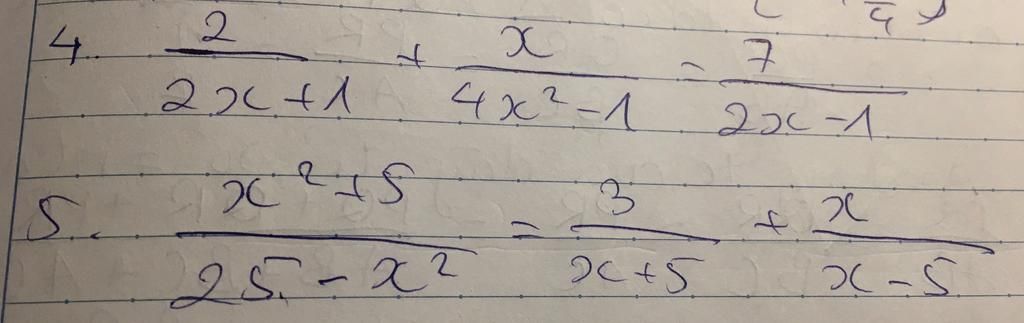 4. 2/(2x+1) + x/(4x²-1) = 7/(2x-1)
5. (x²+5)/(25-x²) = 3/(x+5) + x/(x-5)